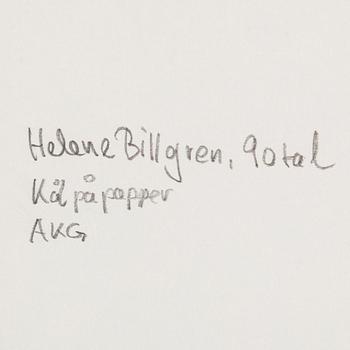 Helene Billgren, 90tal
Kol på papper
AKG